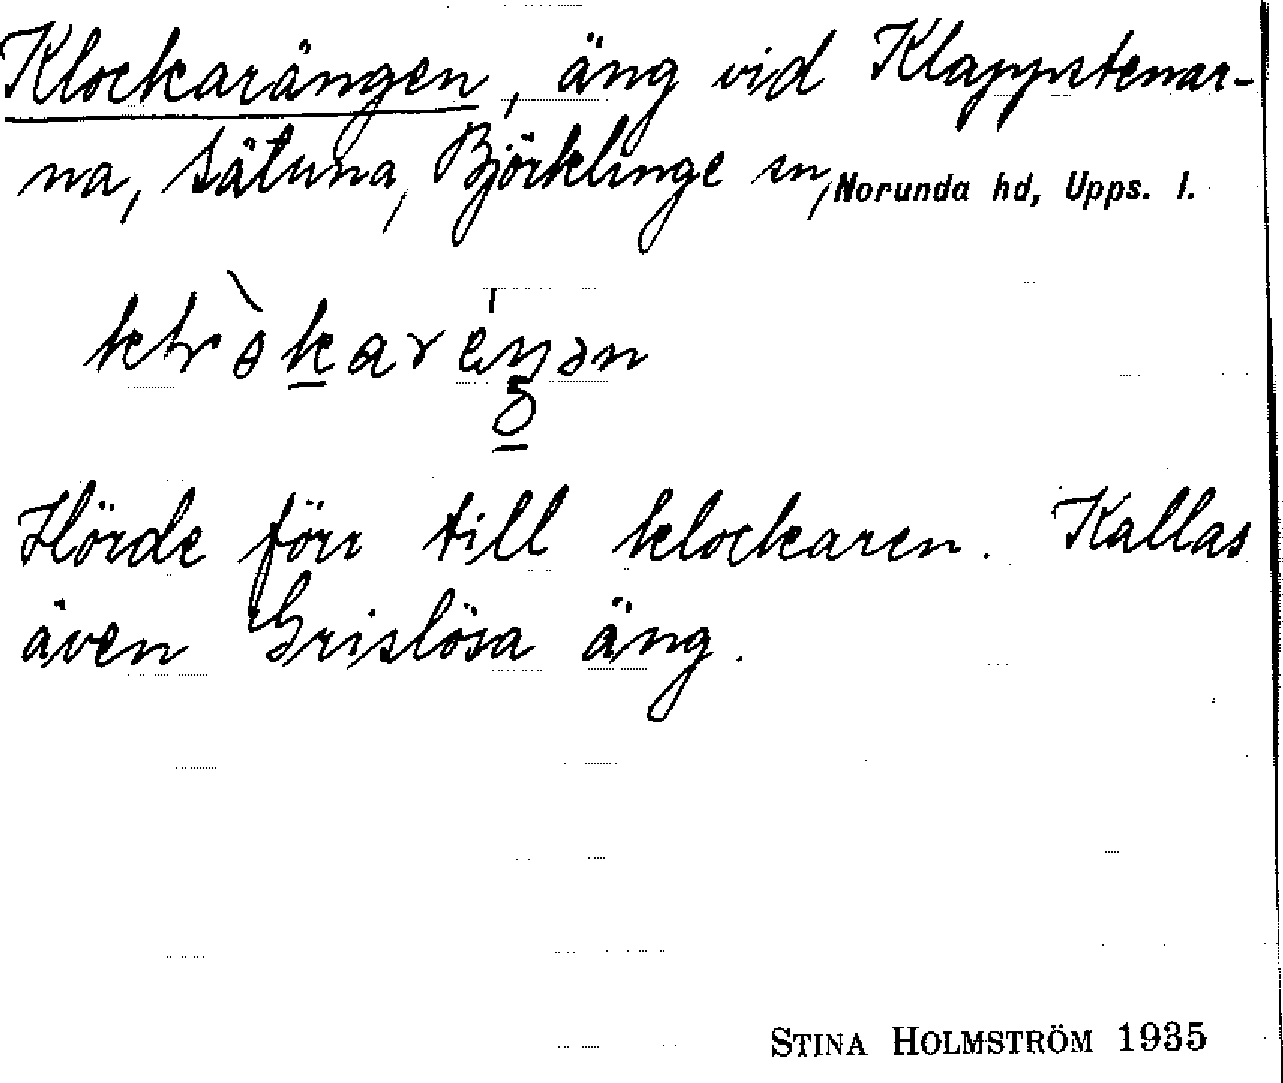 Klockarängen, äng vid Klappstenar-
na, Sätuna, Björklinge sn, Norunda hd, Upps. l.
Hörde förr till klockaren. Kallas
även Grislösa äng.
STINA HOLMSTRÖM 1935